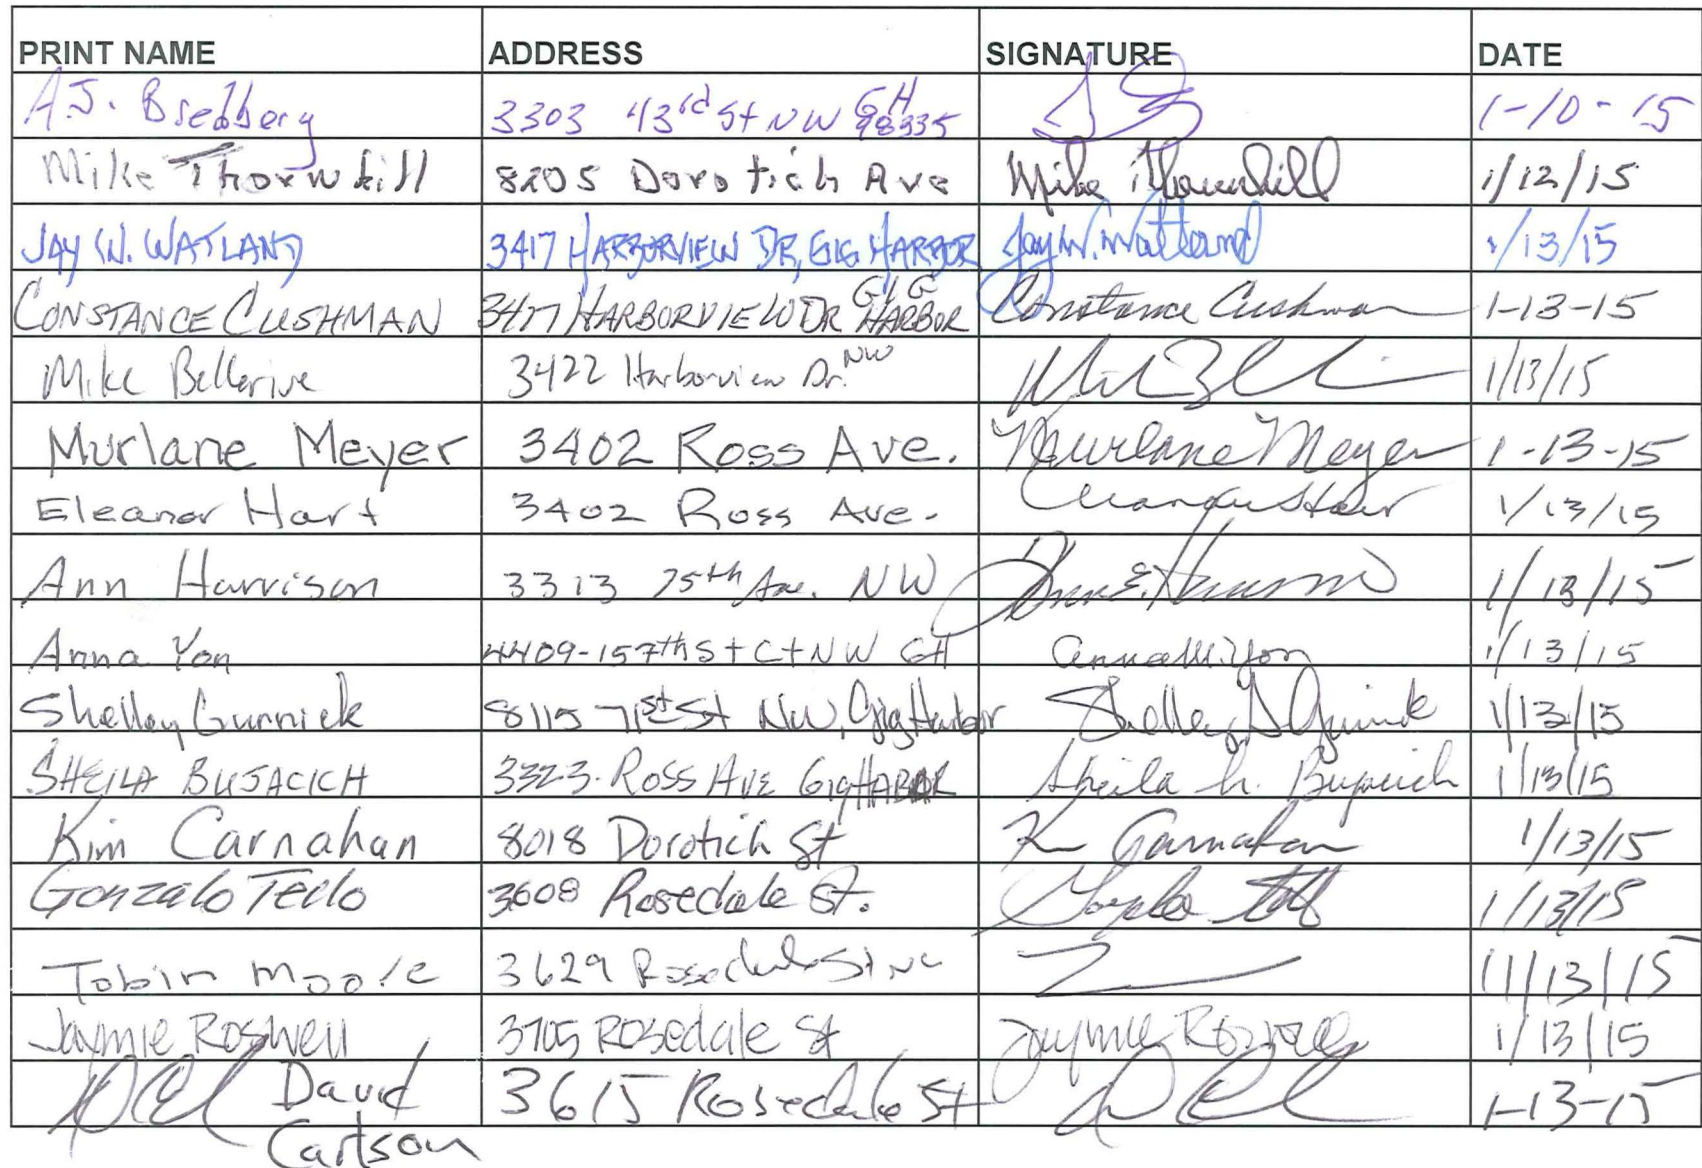 PRINT NAME ADDRESS SIGNATURE DATE
A.J. Bredberg 3303 43rd St NW GH 98335 1-10-15
Mike Thornhill 8205 Dorotich Ave Mike Thornhill 1/12/15
JAY W. WATLAND 3417 HARBORVIEW DR, GIG HARBOR Jay W. Watland 1/13/15
CONSTANCE CUSHMAN 3417 HARBORVIEW DR GIG HARBOR Constance Cushman 1-13-15
Mike Bellerive 3422 Harborview Dr. NW 1/13/15
Murlane Meyer 3402 Ross Ave. Murlane Meyer 1-13-15
Eleanor Hart 3402 Ross Ave. 1/13/15
Ann Harrison 3313 75th Ave. NW Ann E. Harrison 1/13/15
Anna Yon 4409-157th St Ct NW GH Anna M. Yon 1/13/15
Shelley Gurnick 8115 71st St NW, Gig Harbor Shelley Gurnick 1/13/15
SHEILA BUJACICH 3323 ROSS AVE GIG HARBOR Sheila h. Bujacich 1/13/15
Kim Carnahan 8018 Dorotich St K Carnahan 1/13/15
Gonzalo Tello 3608 Rosedale St. 1/13/15
Tobin Moore 3629 Rosedale St NW 1/13/15
Jaymie Roswell 3705 ROSedale St Jaymie Roswell 1/13/15
David 3615 Rosedale St 1-13-15
Carlson